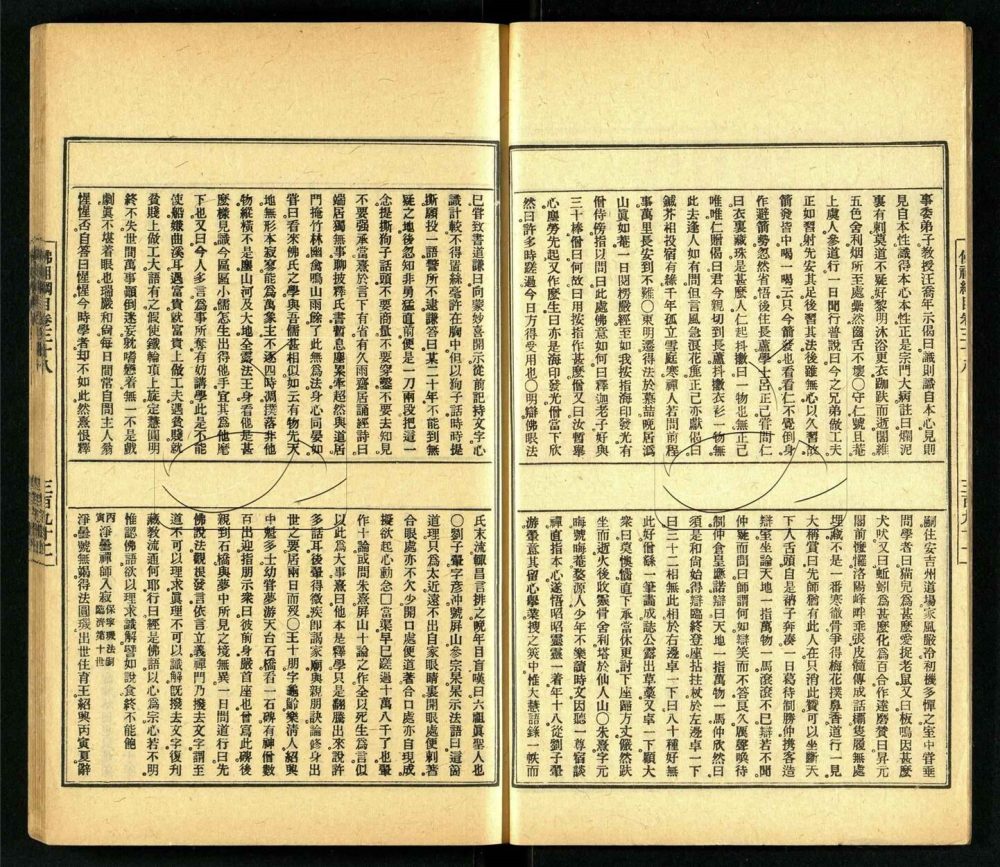 事委弟子教授汪喬年示偈曰識則識自本心見則
見自本性識得本心本性正是宗門大病註曰爛泥
裏有刺莫道不疑好黎明沐浴更衣跏趺而逝闍維
五色舍利烟所至處纍然齒舌不壞○守仁號且菴
上虞人參道行一日聞行普說曰今之兄弟做工夫
正如習射先安其足後習其法後雖無心以久習故
箭發皆中喝一喝云只今箭發也看看仁不覺倒身
作避箭勢忽然省悟後住長蘆學士呂正己嘗問仁
曰衣裏藏珠是甚麼人仁起抖擻曰一物也無正己
唯唯仁贈偈曰君今親切到長蘆抖擻衣衫一物無
此去逢人如有問但言風急浪花麤正己亦獻偈曰
鍼芥相投宿有緣千年孤立雪庭寒禪人若問前程
事萬里長安到不難○東明遷得法於慕喆晩居溈
山眞如菴一日閱楞嚴經至如我按指海印發光有
僧侍傍指以問曰此處佛意如何曰釋迦老子好與
三十棒僧曰何故曰用按指作甚麼僧又曰汝暫舉
心塵勞先起又作麼生曰亦是海印發光僧當下欣
然曰許多時蹉過今日方得受用也○明辯佛眼法
嗣住安吉州道場家風嚴冷初機多憚之室中嘗垂
問學者曰猫兒爲甚麼愛捉老鼠又曰板鳴因甚麼
犬吠又曰蚯蚓爲甚麼化爲百合作達磨贊曰昇元
閣前懡㦬洛陽峰畔乖張皮髓傳成話欛隻履無處
埋藏不是一番寒徹骨爭得梅花撲鼻香道行一見
大稱賞曰先師猶有此人在只消此贊可以坐斷天
下人舌頭自是衲子奔湊一日葛待制勝仲携客造
辯室坐論天地一指萬物一馬滾滾不已辯若不聞
仲疑而問曰師謂何如辯笑而不答頁久厲聲喚待
制仲倉皇應諾辯曰天地一指萬物一馬仲欣然曰
須是和尚始得辯臨終登座拈拄杖於左邊卓一下
曰三十二相無此相於右邊卓一下曰八十種好無
此好僧繇一筆畵成誌公露出草藁又卓一下顧大
衆曰莫懊惱直下承當休更討下座歸方丈儼然趺
坐而逝火後收靈骨舍利塔於仙人山○朱熹字元
晦號晦菴婺源人少年不樂讀時文因聽一尊宿談
禪直指本心遂悟昭昭靈靈一著年十八從劉子翬
游翬意其留心學業搜之篋中惟大慧語錄一帙而
巳嘗致書道謙曰向蒙妙喜開示從前記持文字心
識計較不得置絲毫許在胸中但以狗子話時時提
撕願投一語警所不逮謙答曰某二十年不能到無
疑之地後忽知非勇猛直前便是一刀兩段把這一
念提撕狗子話頭不要商量不要穿鑿不要去知見
不要强承當熹於言下有省有久雨齋居誦經詩曰
端居獨無事聊披釋氏書暫息塵累牽超然與道居
門掩竹林幽禽鳴山雨餘了此無爲法身心同晏如
嘗曰看來佛氏之學與吾儒甚相似如云有物先天
地無形本寂寥能爲萬象主不逐四時凋撲落非他
物縱橫不是塵山河及大地全露法王身看他是甚
麼樣見識今區區小儒怎生出得他手宜其爲他麾
下也又曰今人多言爲事所奪有妨講學此是不能
使船嫌曲溪耳遇富貴就富貴上做工夫遇貧賤就
貧賤上做工夫語有之假使鐵輪頂上旋定慧圓明
終不失世間萬事顚倒迷妄躭嗜戀着無一不是戲
劇眞不堪着眼也瑞巖和尚每日間常自問主人翁
惺惺否自答曰惺惺今時學者却不如此然熹恨釋
氏末流輙昌言排之晩年目盲嘆曰六龜眞聖人也
○劉子翬字彥冲號屏山參宗杲杲示法語曰這箇
道理只爲太近遠不出自家眼睛裏開眼處便刺著
合眼處亦不欠少開口處便道著合口處亦自現成
擬欲起心動念□當渠早已蹉過十萬八千了也翬
作十論或問朱熹屏山十論之作於公全以死生爲言似
以此爲大事熹曰他本是釋學只是翻騰出來說許
多話耳後翬得微疾卽謁家廟與親朋訣論修身出
世之要居兩日而歿○王十朋字龜齡樂淸人紹興
中魁多士幼嘗夢游天台石橋看一石碑有禪僧數
百出迎指朋示衆曰彼前身嚴首座也曾寫此碑後
親到石橋與夢中所見之境無異一日問道行曰先
佛說法觀根發言依言立義禪門乃撥去文字謂至
道不可以理求眞理不可以識解旣撥去文字復刋
藏教流通何耶行曰經是佛語以心爲宗心若不明
惟認佛語欲以理求識解譬如說食終不能飽
丙寅 淨曇禪師入寂 保寧璣法嗣臨濟第十世
淨曇號無竭得法圓璣出世住育王紹興丙寅夏辭
佛祖綱目卷三十八
三百九十二